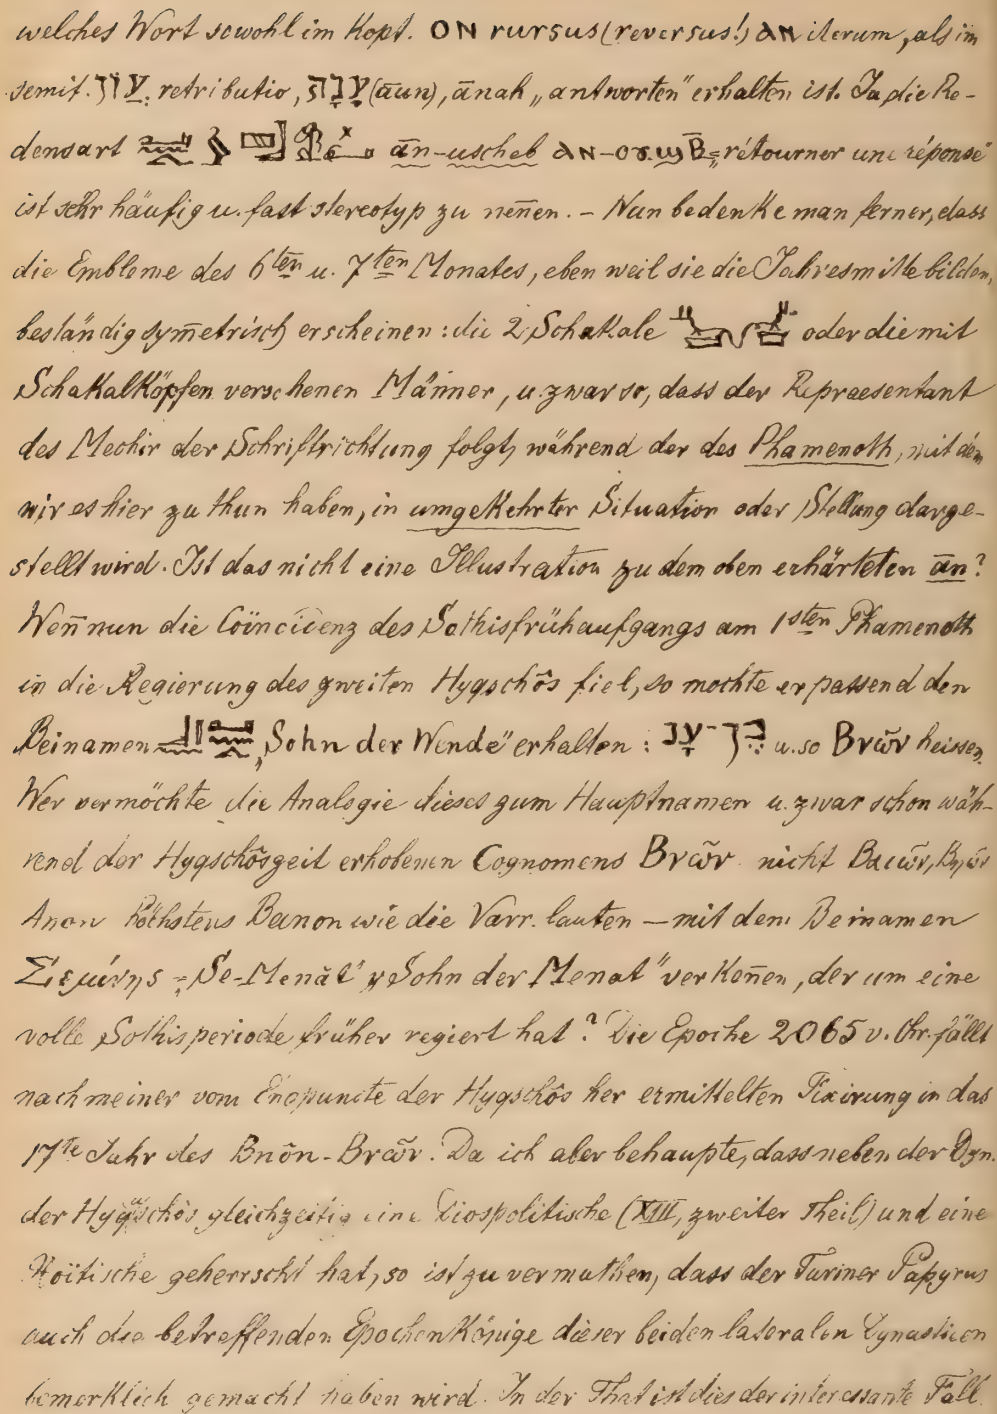 welches Wort sowohl im Kopt. ON rursus (reversus!) ⲁⲛ iterum, als im
semit. עון retributio, ענה (āun), ānah „antworten" erhalten ist. Ja die Re-
densart ān-uscheb ⲁⲛ-ⲟⲩⲱϣⲃ = „rétourner une réponse"
ist sehr häufig u. fast stereotyp zu neñen. – Nun bedenke man ferner, dass
die Embleme des 6ten u. 7ten Monates, eben weil sie die Jahresmitte bilden,
beständig sym̄etrisch erscheinen: die 2 Schakale oder die mit
Schakalköpfen versehenen Männer, u. zwar so, dass der Repraesentant
des Mechir der Schriftrichtung folgt, während der des Phamenoth, mit dem
wir es hier zu thun haben, in umgekehrter Situation oder Stellung darge-
stellt wird. Ist das nicht eine Illustration zu dem oben erhärteten ān?
Weñ nun die Coïncidenz des Sothisfrühaufgangs am 1sten Phamenoth
in die Regierung des zweiten Hyqschôs fiel, so mochte er passend den
Beinamen „Sohn der Wende" erhalten: בן-ען u. so Βνῶν heissen.
Wer vermöchte die Analogie dieses zum Hauptnamen u. zwar schon wäh-
rend der Hyqschôszeit erhobenen Cognomens Βνῶν nicht Βαιών, Βηών
Anon höchstens Banon wie die Varr. lauten – mit dem Beinamen
Σεμένης = „Se-Menāt" „Sohn der Menat" verkeñen, der um eine
volle Sothisperiode früher regiert hat? Die Epoche 2065 v. Chr. fällt
nach meiner vom Endpuncte der Hyqschôs her ermittelten Fixirung in das
17te Jahr des Bnôn-Βνῶν. Da ich aber behaupte, dass neben der Dyn.
der Hyqschôs gleichzeitig eine Diospolitische (XIII, zweiter Theil) und eine
Xoïtische geherrscht hat, so ist zu vermuthen, dass der Turiner Papyrus
auch die betreffenden Epochenkönige dieser beiden lateralen Dynastieen
bemerklich gemacht haben wird. In der That ist dies der interessante Fall.